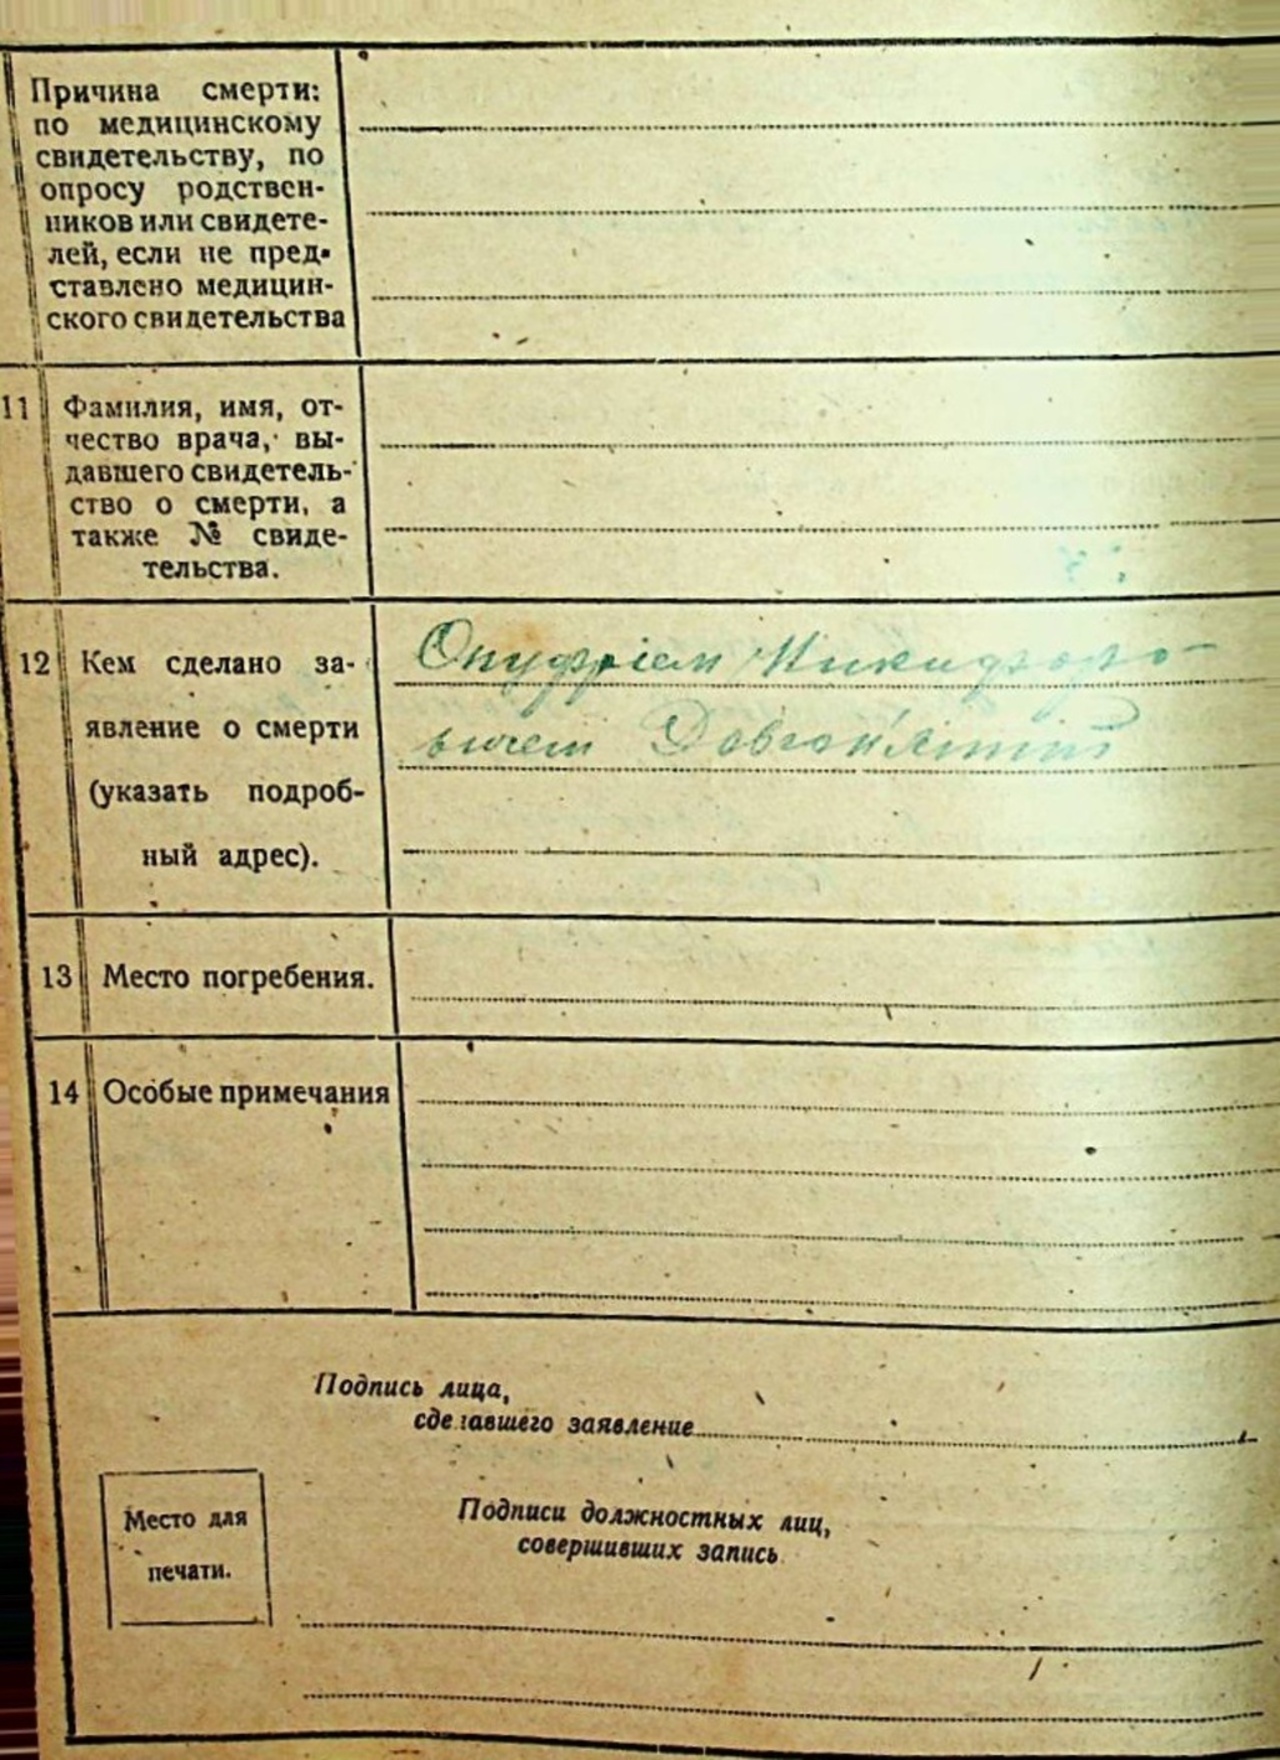 Причина смерти:
по медицинскому
свидетельству, по
опросу родствен-
ников или свидете-
лей, если не пред-
ставлено медицин-
ского свидетельства
11 Фамилия, имя, от-
чество врача, вы-
давшего свидетель-
ство о смерти, а
также № свиде-
тельства.
12 Кем сделано за-
явление о смерти
(указать подроб-
ный адрес).
Онуфрієм Никифоро-
вичем
13 Место погребения.
14 Особые примечания
Подпись лица,
сделавшего заявление
Место для
печати.
Подписи должностных лиц,
совершивших запись